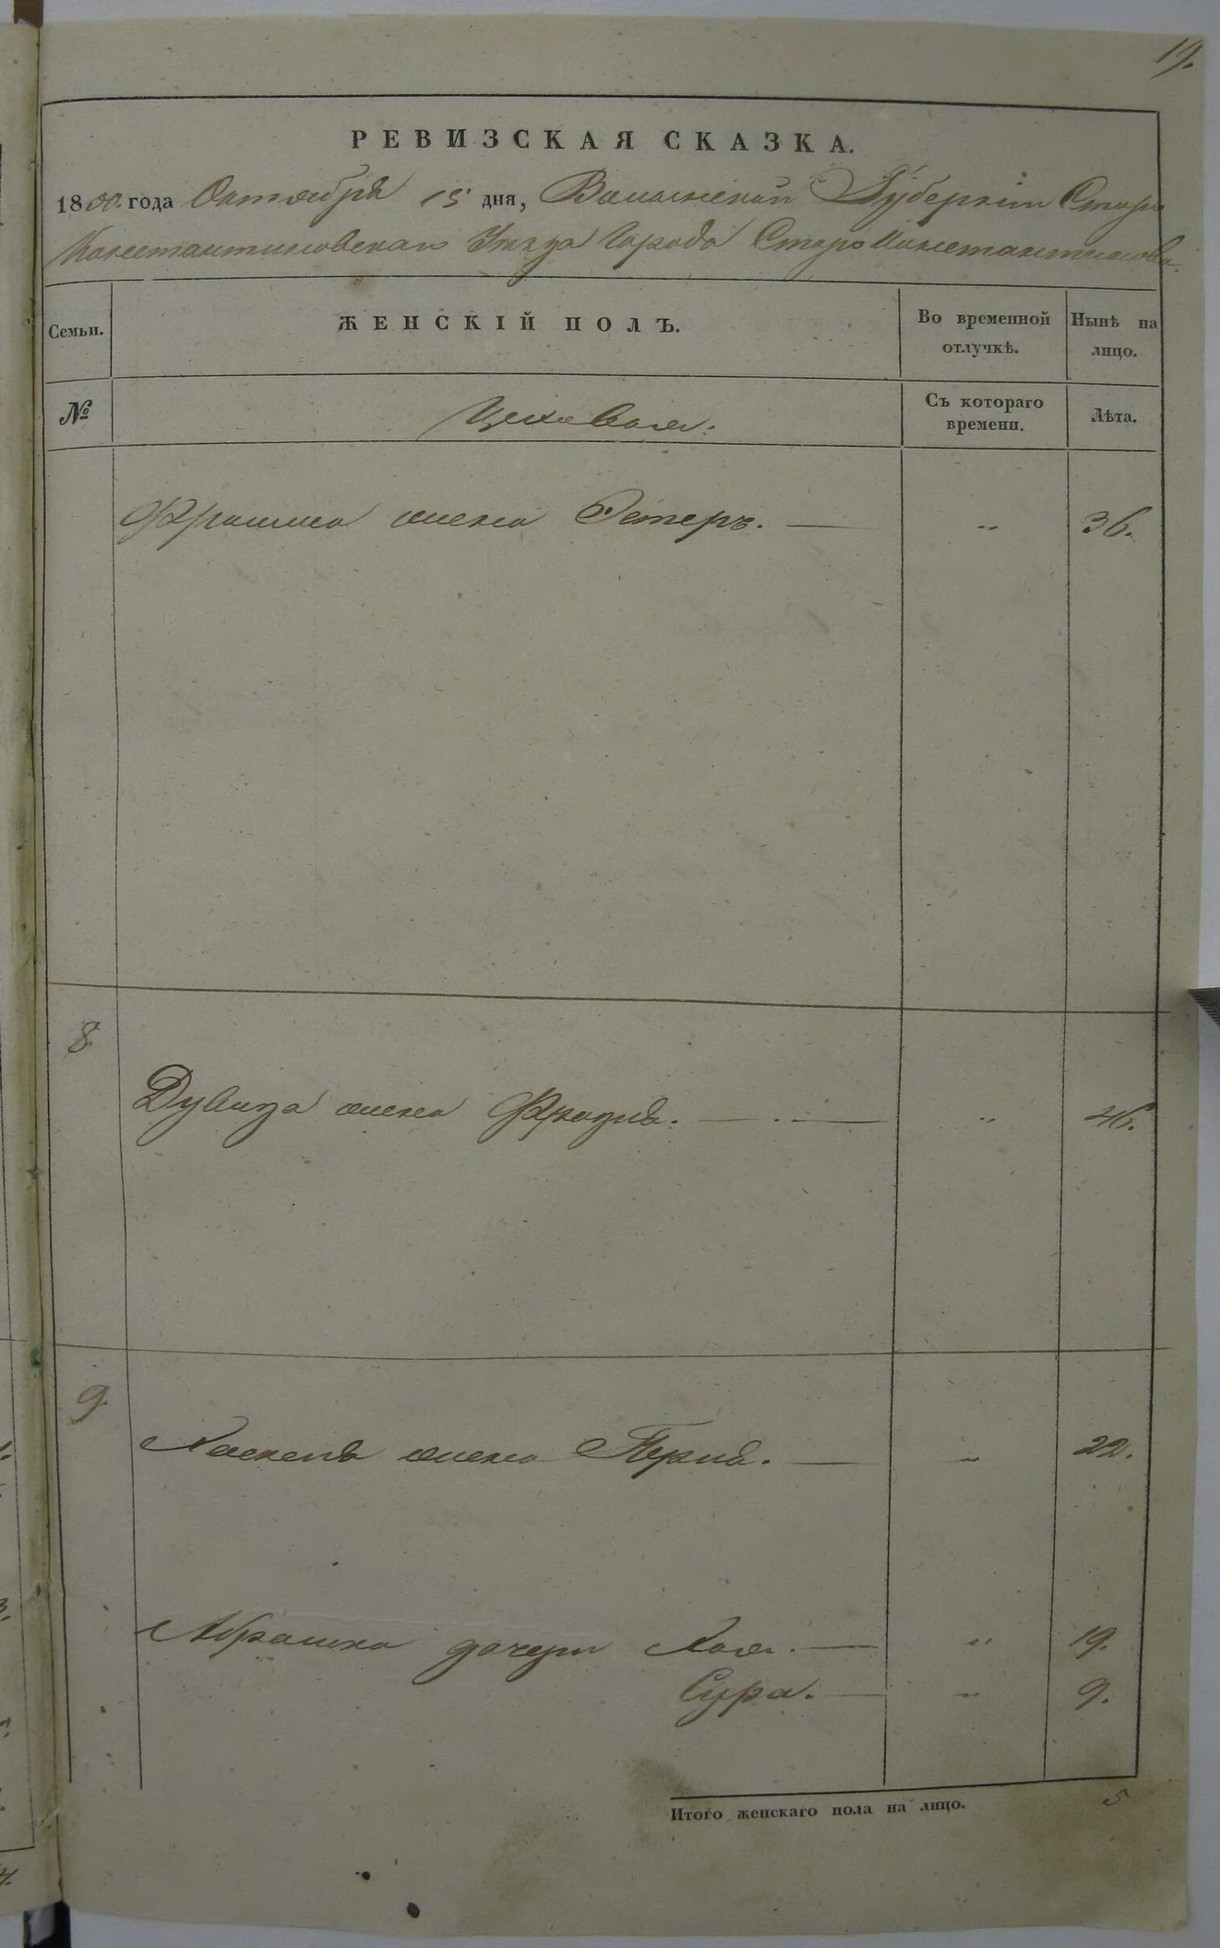 19.
РЕВИЗСКАЯ СКАЗКА.
1850. года Октября 15 дня, Волынской Губерніи Старо
Константиновскаго Уѣзда Города Старо Константинова.
Семьи. ЖЕНСКІЙ ПОЛЪ. Во временной отлучкѣ. Нынѣ на лицо.
№ Цеховая. Съ котораго времени. Лѣта.
жена Эстеръ. — " 36.
8.
Дувида жена Фрадля. — " 46.
9.
Хаскеля жена Перля. — " 22.
Абрашка дочери Хая. — " 19.
Сура. — " 9.
Итого женскаго пола на лицо. 5